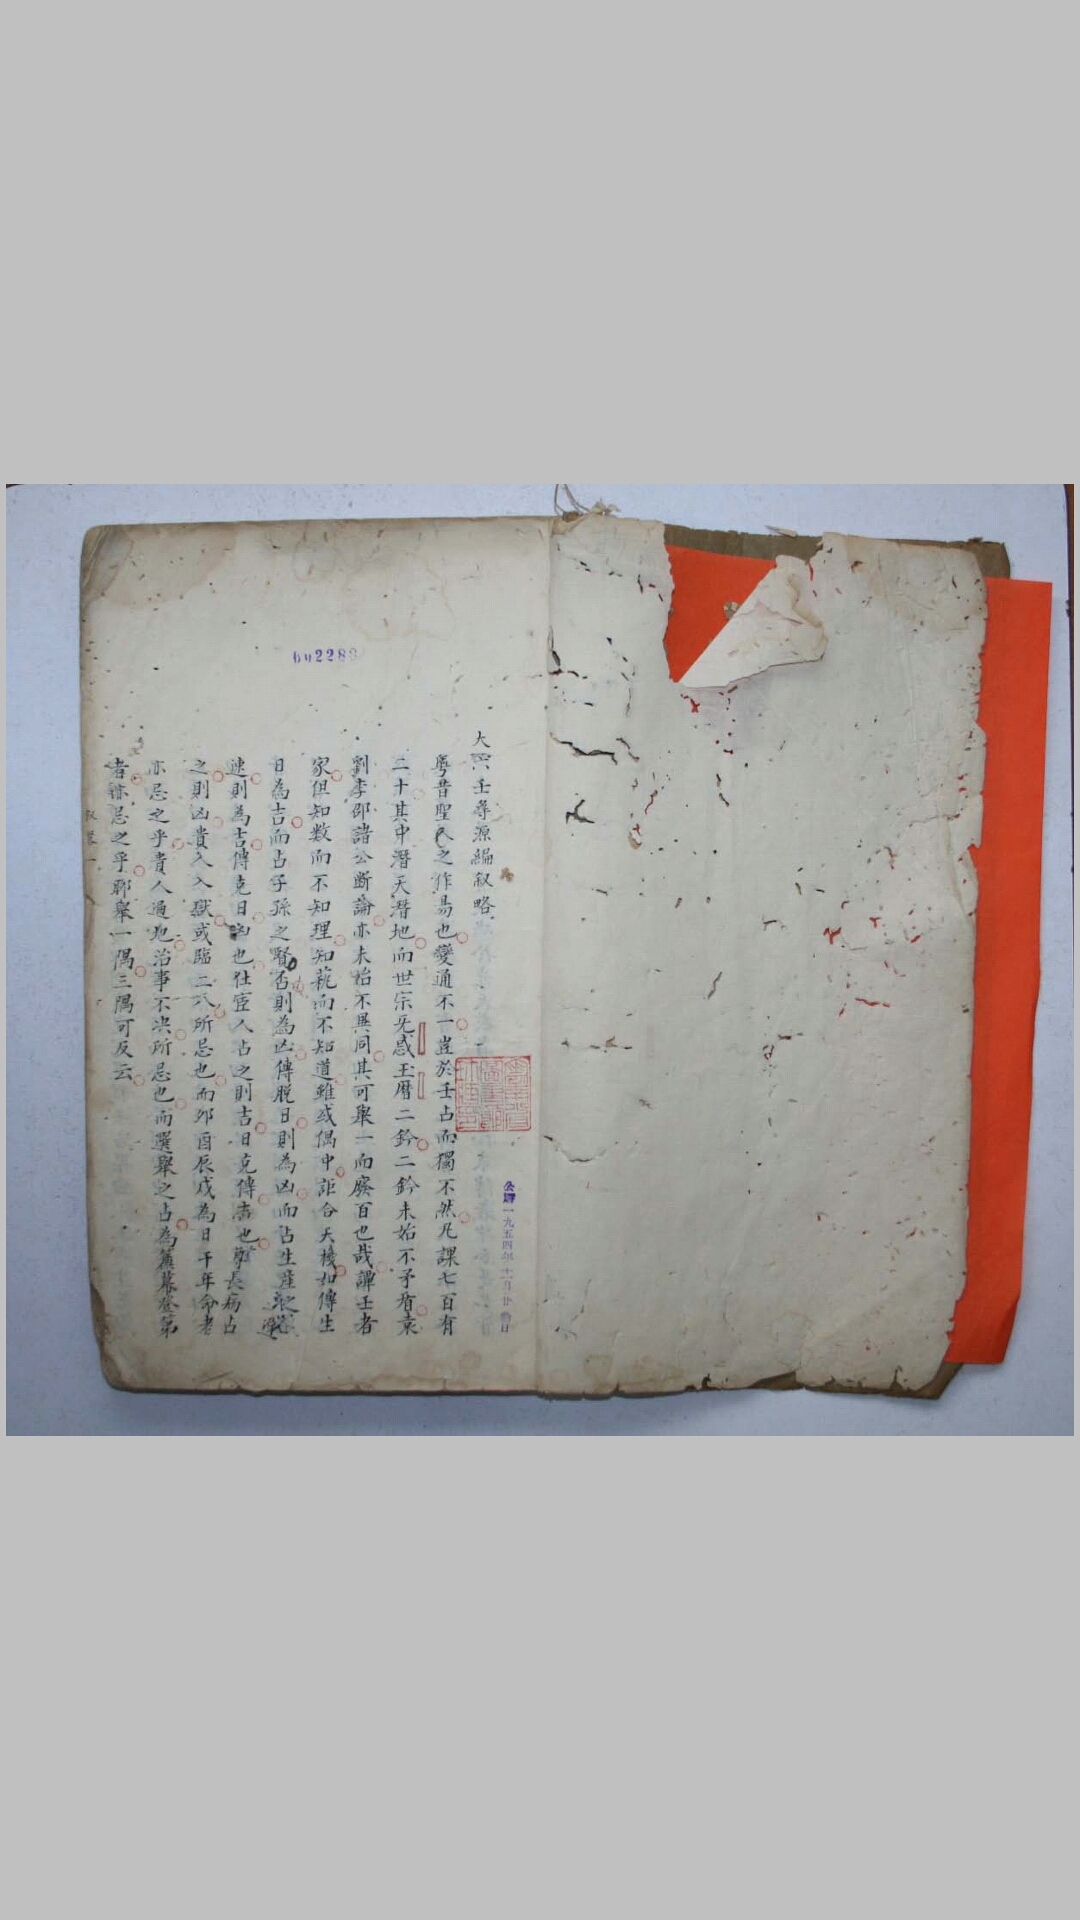 大六壬尋源編叙略
粤昔聖人之作易也變通不一豈於壬占而獨不然凡課七百有
二十其中潛天潛地而世宗元惑玉曆二鈐二鈐未始不矛盾袁
劉李邵諸公斷論亦未始不異同其可舉一而廢百也哉譚壬者
家俱知數而不知理知藝而不知道雖或偶中詎合天機如傳生
日為吉而占子孫之賢否則為凶傳脫日則為凶而占生産之遲
速則為吉傳克日凶也仕宦人占之則吉日克傳吉也尊長病占
之則凶貴人入獄或臨二八所忌也而卯酉辰戌為日干年命者
亦忌之乎貴人過地治事不决所忌也而選舉之占為簾幕登第
者亦忌之乎聊舉一隅三隅可反云
叙畧 一
602289
一九五四年十一月廿 日